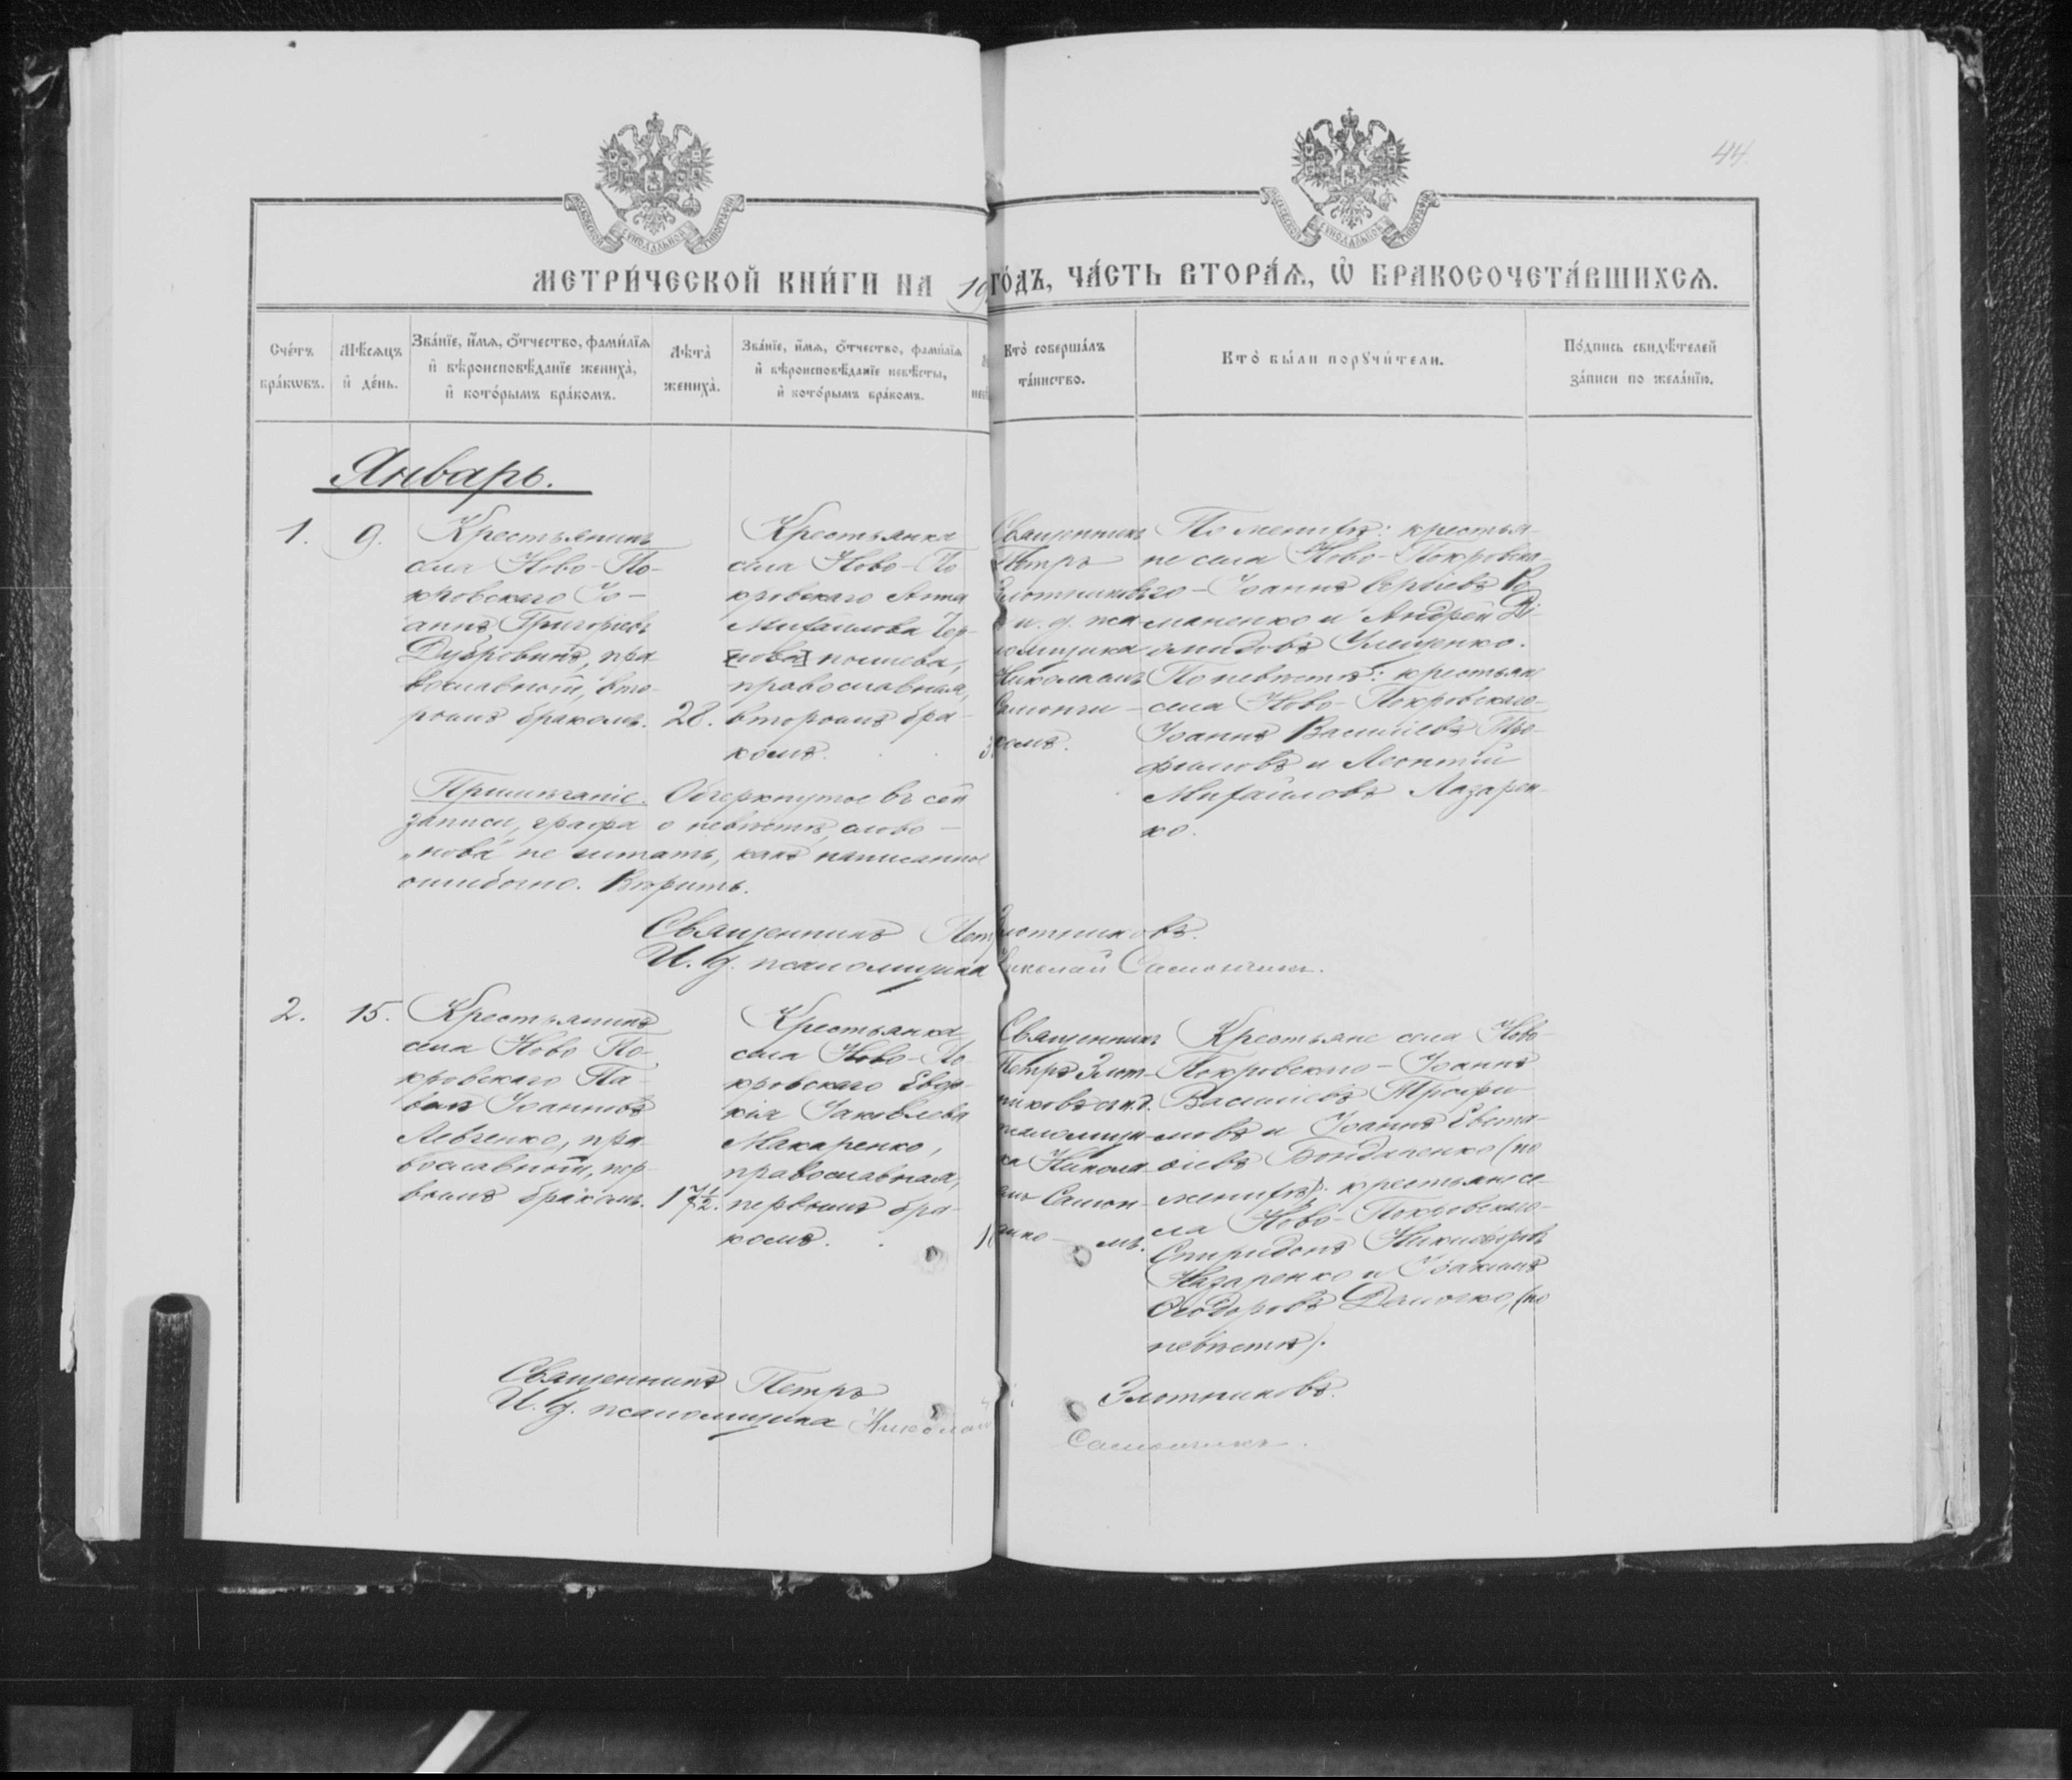 44
МЕТРИ́ЧЕСКОЙ КНИ́ГИ НА 19
ГО́ДЪ, ЧА́СТЬ ВТОРА́Ѧ, Ѡ҆ БРАКОСОЧЕТА́ВШИХСѦ.
Сче́тъ
бра́кѡвъ.
Мѣ́сѧцъ
и҆ де́нь.
Зва́нїе, и҆́мѧ, ѻ҆́тчество, фами́лїѧ
и҆ вѣроисповѣ́данїе жениха̀,
и҆ кото́рымъ бра́комъ.
Лѣта̀
жениха̀.
Зва́нїе, и҆́мѧ, ѻ҆́тчество, фами́лїѧ
и҆ вѣроисповѣ́данїе невѣ́сты,
и҆ кото́рымъ бра́комъ.
Кто̀ соверша́лъ
та́инство.
Кто̀ бы́ли порꙋчи́тели.
По́дпись свидѣ́телей
за́писи по жела́нїю.
Январь.
1.
9.
Крестьянинъ
села Ново-По-
кровскаго Іо-
аннъ Григорьевъ
Дубровинъ, пра-
вославный, вто-
рымъ бракомъ.
28.
Крестьянка
села Ново-По
кровскаго Анна
Михаилова Чер-
[нова]
православная,
вторымъ бра-
комъ.
Священникъ
Петръ
Злотниковъ
и. д. пса
ломщика
Николаемъ
комъ.
По женихѣ: крестья-
не села Ново-Покровска-
го - Іоаннъ Сергіевъ Ро
маненко и Андрей Ді-
омидовъ Улещенко.
По невѣстѣ: крестьяне
села Ново-Покровскаго-
Іоаннъ Василіевъ Тро-
фимовъ и Леонтій
Михаиловъ Лазарен-
ко.
Примѣчаніе. Очеркнутое въ сей
записи, графа о невѣстѣ, слово -
„нова" не читать, какъ написанное
ошибочно. Вѣрить.
Священникъ Петръ Злотниковъ.
И. д. псаломщика Николай
2.
15.
Крестьянинъ
села Ново По-
кровскаго Па-
велъ Іоанновъ
Левченко, пра-
вославный, пер-
вымъ бракомъ.
17½.
Крестьянка
села Ново-По
кровскаго Евдо-
кія Іаковлева
Макаренко,
православная,
первымъ бра-
комъ.
Священникъ
Петръ Злот-
никовъ съ и. д.
псаломщи-
ка Никола-
емъ Самой-
Крестьяне села Ново-
Покровскаго - Іоаннъ
Василіевъ Трофи-
мовъ и Іоаннъ Евста-
фіевъ Бондаренко (по
женихѣ); крестьяне се-
ла Ново-Покровскаго-
Спиридонъ Никифоровъ
Назаренко и Іоакимъ
Ѳеодоровъ Демочко, (по
невѣстѣ).
Священникъ Петръ Злотниковъ.
И. д. псаломщика Николай